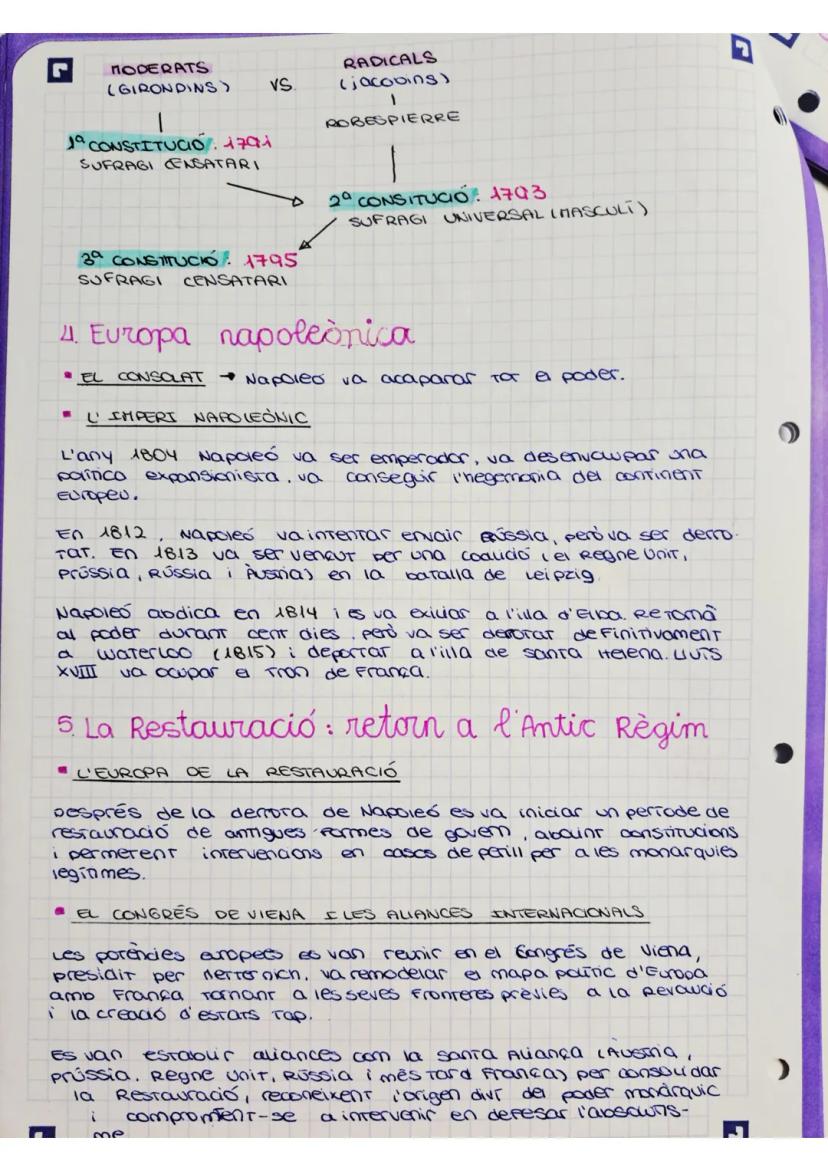 MODERATS
(GIRONDINS)
VS.
RADICALS
(jacobins)
ROBESPIERRE
1ª CONSTITUCIÓ: 1791
SUFRAGI CENSATARI
2ª CONSITUCIÓ: 1793
SUFRAGI UNIVERSAL (MASCULÍ)
3ª CONSTITUCIÓ: 1795
SUFRAGI CENSATARI
4. Europa napoleònica
• EL CONSOLAT → Napoleó va acaparar tot el poder.
• L'IMPERI NAPOLEÒNIC
L'any 1804 Napoleó va ser emperador, va desenvolupar una
política expansionista, va conseguir l'hegemonia del continent
europeu.
En 1812, Napoleó va intentar envair Rússia, però va ser derro-
tat. En 1813 va ser vençut per una coalició (el Regne Unit,
Prússia, Rússia i Àustria) en la batalla de Leipzig.
Napoleó abdica en 1814 i es va exiliar a l'illa d'Elba. Retornà
al poder durant cent dies, però va ser derrotat definitivament
a Waterloo (1815) i deportat a l'illa de Santa Helena. Lluís
XVIII va ocupar el tron de França.
5. La Restauració: retorn a l'Antic Règim
• L'EUROPA DE LA RESTAURACIÓ
Després de la derrota de Napoleó es va iniciar un període de
restauració de antigues formes de govern, abolint constitucions
i permetent intervencions en casos de perill per a les monarquies
legítimes.
• EL CONGRÉS DE VIENA I LES ALIANCES INTERNACIONALS
Les potències europees es van reunir en el Congrés de Viena,
presidit per Metternich. Va remodelar el mapa polític d'Europa
amb França tornant a les seves fronteres prèvies a la Revolució
i la creació d'estats tap.
Es van establir aliances com la Santa Aliança (Àustria,
Prússia, Regne Unit, Rússia i més tard França) per consolidar
la Restauració, reconeixent l'origen diví del poder monàrquic
i comprometent-se a intervenir en defesar l'absolutis-
me